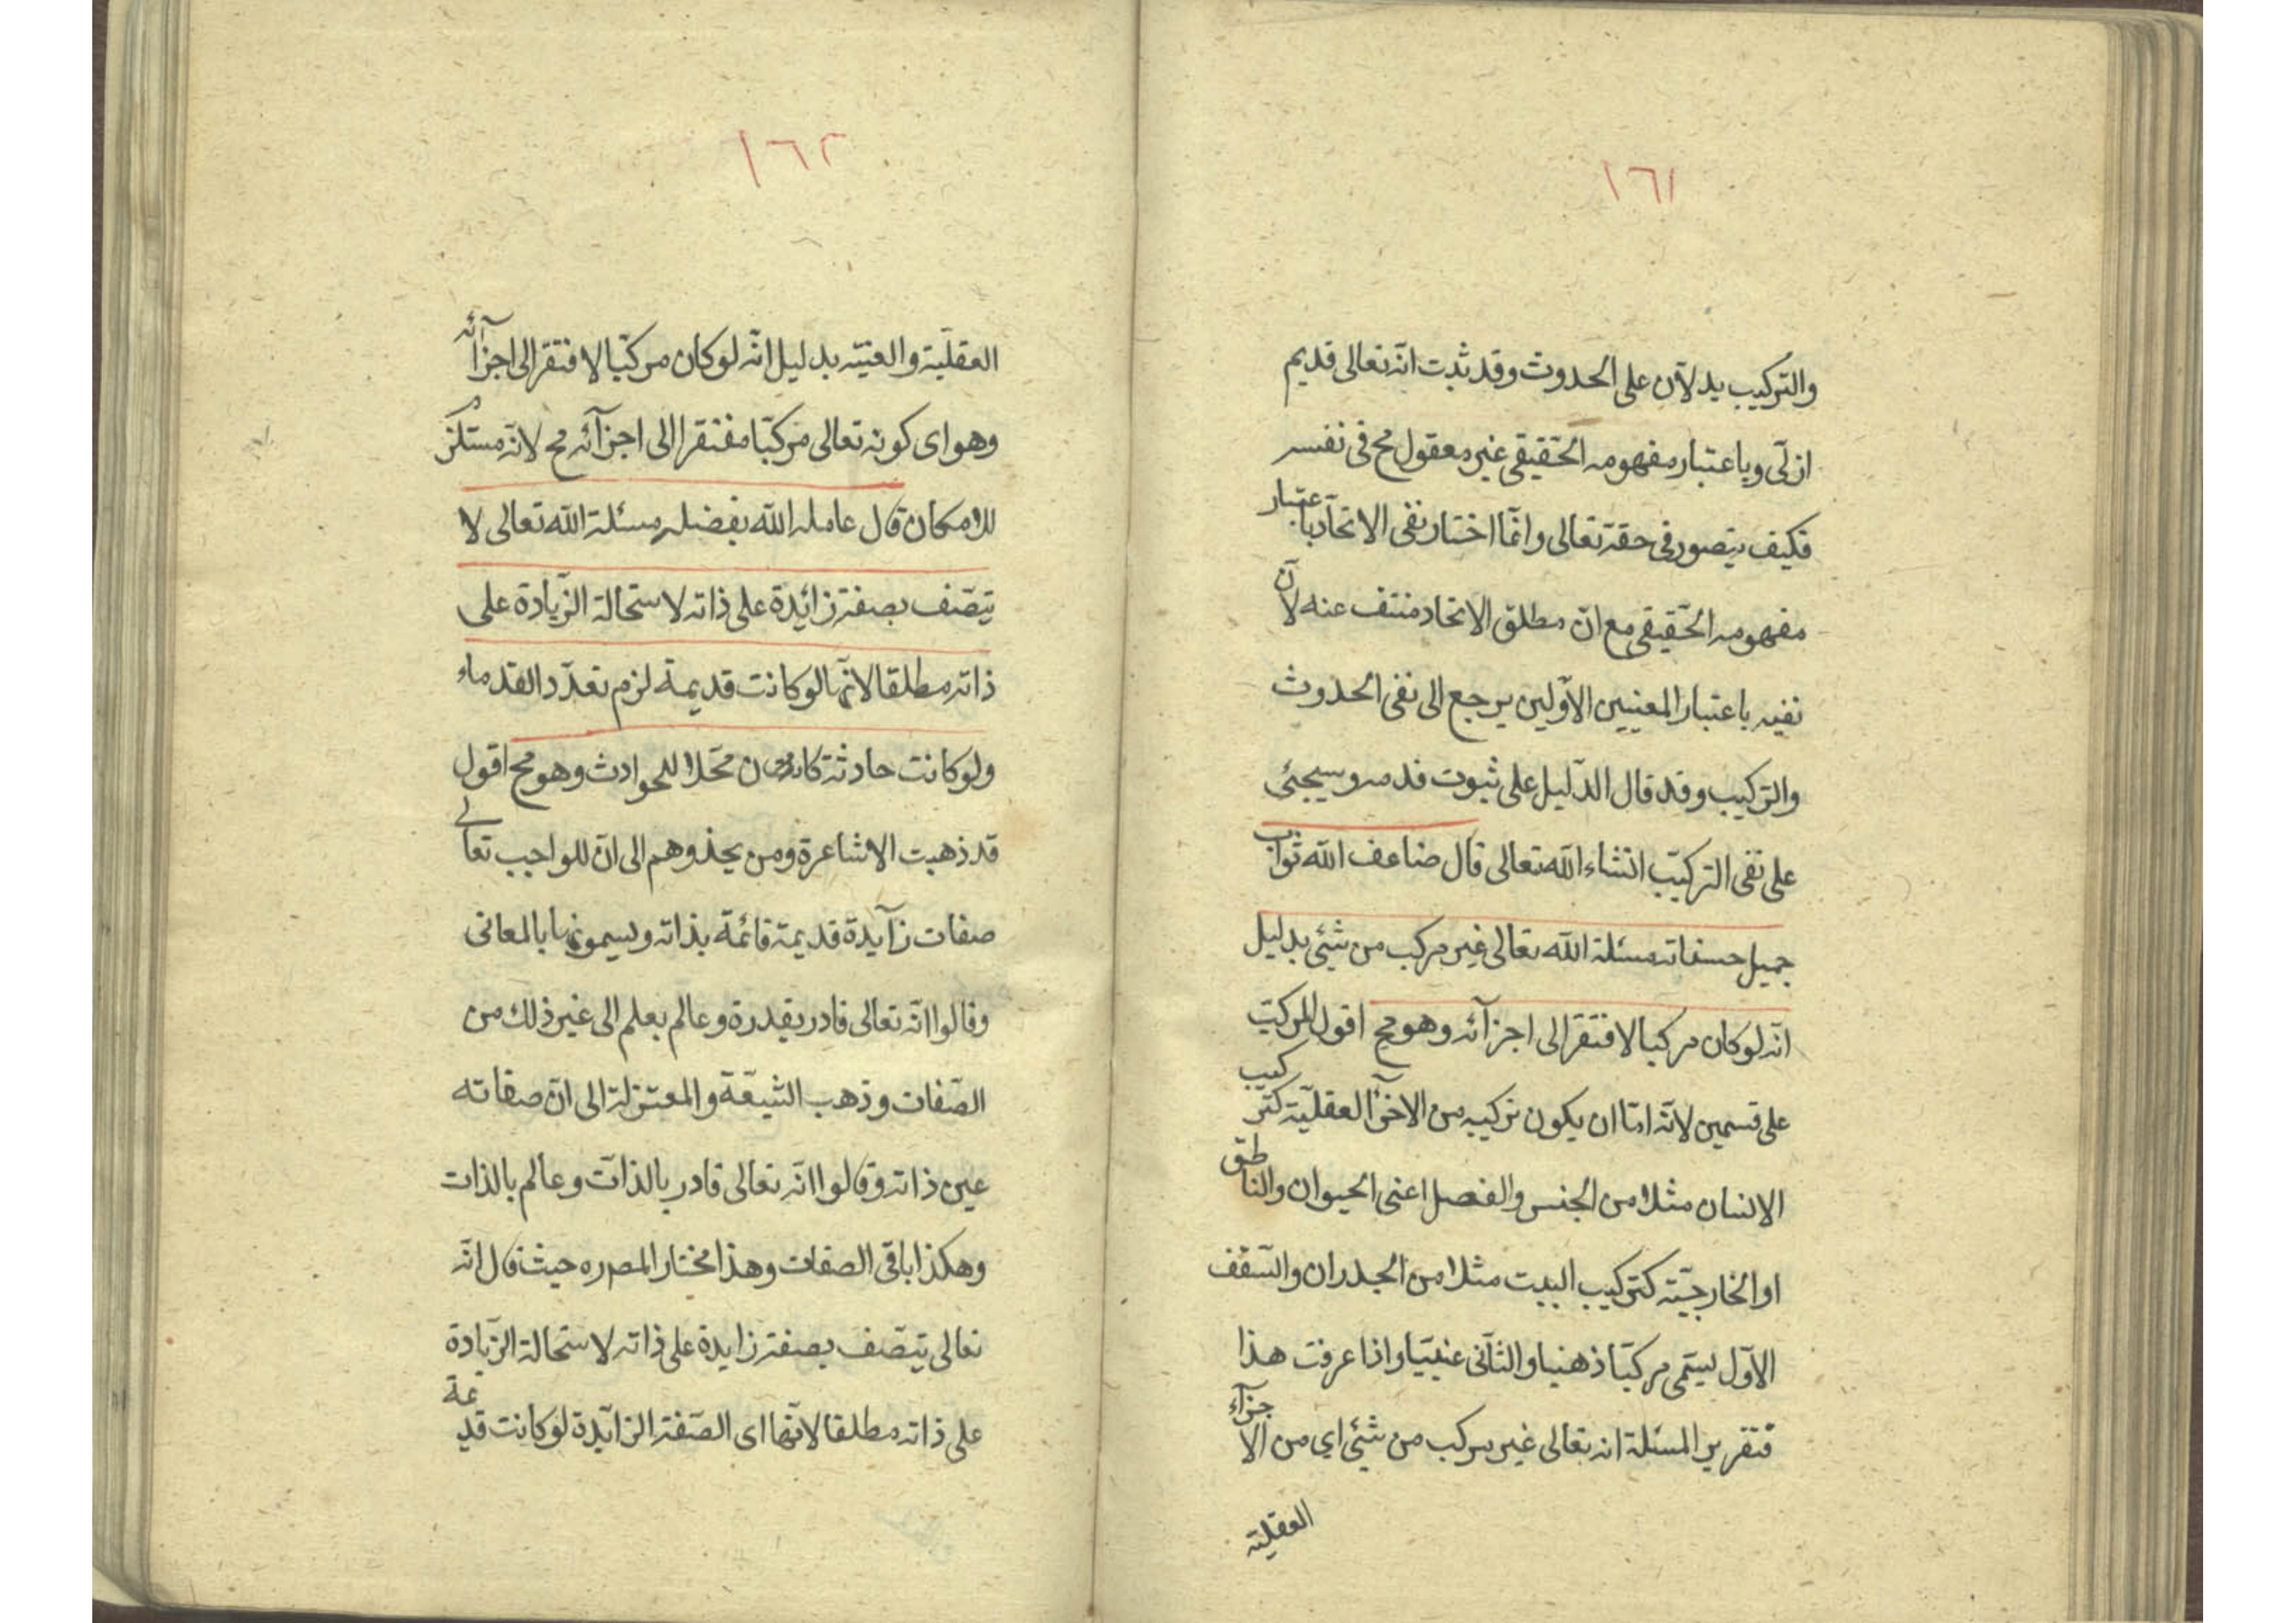 ١٦١
والتركيب يدلان على الحدوث وقد ثبت انه تعالى قديم
ازلى وباعتبار مفهومه الحقيقى غير معقول مح فى نفسه
فكيف يتصور فى حقه تعالى وانما اختار نفى الاتحاد باعتبار
مفهومه الحقيقى مع ان مطلق الاتحاد منتف عنه لان
نفيه باعتبار المعنيين الاولين يرجع الى نفى الحدوث
والتركيب وقد قال الدليل على ثبوت قدمه وسيجئى
على نفى التركيب انشاء الله تعالى قال ضاعف الله ثواب
جميل حسناته مسئلة الله تعالى غير مركب من شيئى بدليل
انه لو كان مركبا لافتقر الى اجزآئه وهو مح اقول المركب
على قسمين لانه اما ان يكون تركيبه من الاجزآ العقلية كتركيب
الانسان مثلا من الجنس والفصل اعنى الحيوان والناطق
او الخارجية كتركيب البيت مثلا من الجدران والسقف
الاول يسمى مركبا ذهنيا والثانى عينيا واذا عرفت هذا
فتقرير المسئلة انه تعالى غير مركب من شيئى اي من الاجزآء
العقلية
١٦٢
العقلية والعينية بدليل انه لو كان مركبا لافتقر الى اجزآئه
وهو اى كونه تعالى مركبا مفتقرا الى اجزآئه مح لانه مستلزم
للامكان قال عامله الله بفضله مسئلة الله تعالى لا
يتصف بصفة زائدة على ذاته لاستحالة الزيادة على
ذاته مطلقا لانها لو كانت قديمة لزم تعدد القدماء
ولو كانت حادثة كان محلا للحوادث وهو مح اقول
قد ذهبت الاشاعرة ومن يحذوهم الى ان للواجب تعالى
صفات زآيدة قديمة قائمة بذاته ويسمونها بالمعانى
وقالوا انه تعالى قادر بقدرة وعالم بعلم الى غير ذلك من
الصفات وذهب الشيعة والمعتزلة الى ان صفاته
عين ذاته وقالوا انه تعالى قادر بالذات وعالم بالذات
وهكذا باقى الصفات وهذا مختار المصره حيث قال انه
تعالى يتصف بصفة زايدة على ذاته لاستحالة الزيادة
على ذاته مطلقا لانها اى الصفة الزآيدة لو كانت قديمة